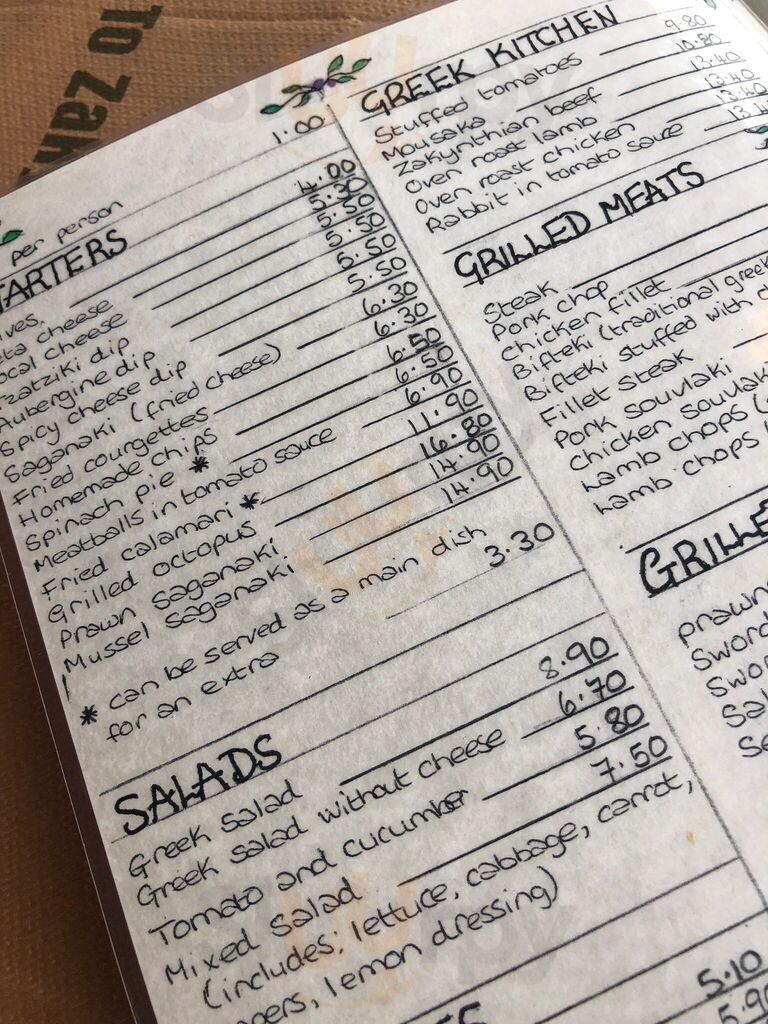 To Zak
1.00
per person
TARTERS
4.00
ives,
5.30
eta cheese
5.30
ocal cheese
5.50
zatziki dip
5.50
Aubergine dip
5.50
Spicy cheese dip
6.30
Saganaki (fried cheese)
6.30
Fried courgettes
6.50
Homemade chips
6.50
Spinach pie *
6.90
Meatballs in tomato sauce
11.90
Fried calamari *
16.80
Grilled octopus
14.90
Prawn saganaki
14.90
Mussel saganaki
* can be served as a main dish
for an extra 3.30
SALADS
Greek salad 8.90
Greek salad without cheese 6.70
Tomato and cucumber 5.80
Mixed salad 7.50
(includes; lettuce, cabbage, carrot,
pers, lemon dressing)
5.10
5.90
GREEK KITCHEN
Stuffed tomatoes 9.80
Mousaka 10.80
Zakynthian beef 13.40
Oven roast lamb 13.40
Oven roast chicken 13.40
Rabbit in tomato sauce 13.4
GRILLED MEATS
Steak
Pork chop
Chicken fillet
Bifteki (traditional greek
Bifteki stuffed with
Fillet steak
Pork souvlaki
Chicken souvlaki
Lamb chops
Lamb chops
GRILLE
Prawn
Sword
Swor
Sal
Se